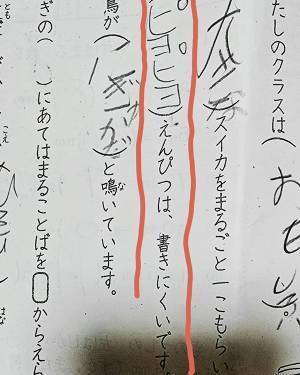 たしのクラスは(お
大きな)スイカをまるごと一こもらい
ピヨピヨ)えんぴつは、書きにくいです。
鳥が()と鳴いています。
な
ぎの( )にあてはまることばを からえら
とも
こえ
はな